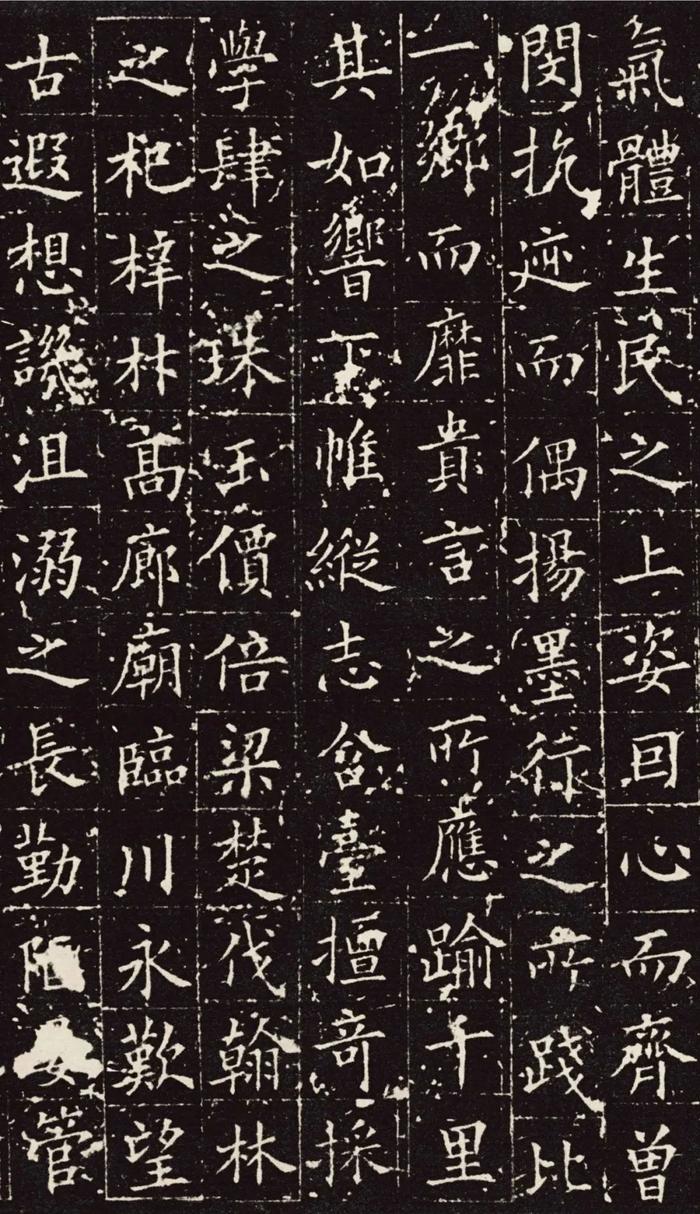 氣體生民之上姿囙心而齊曾
閔抗迹而偶揚墨行之所踐比
一鄉而靡貴言之所應踰千里
其如響下帷縱志臺擅竒採
學肆之珠玉價倍梁楚伐翰林
之杞梓林髙廊廟臨川永歎望
古遐想譏沮溺之長勤管